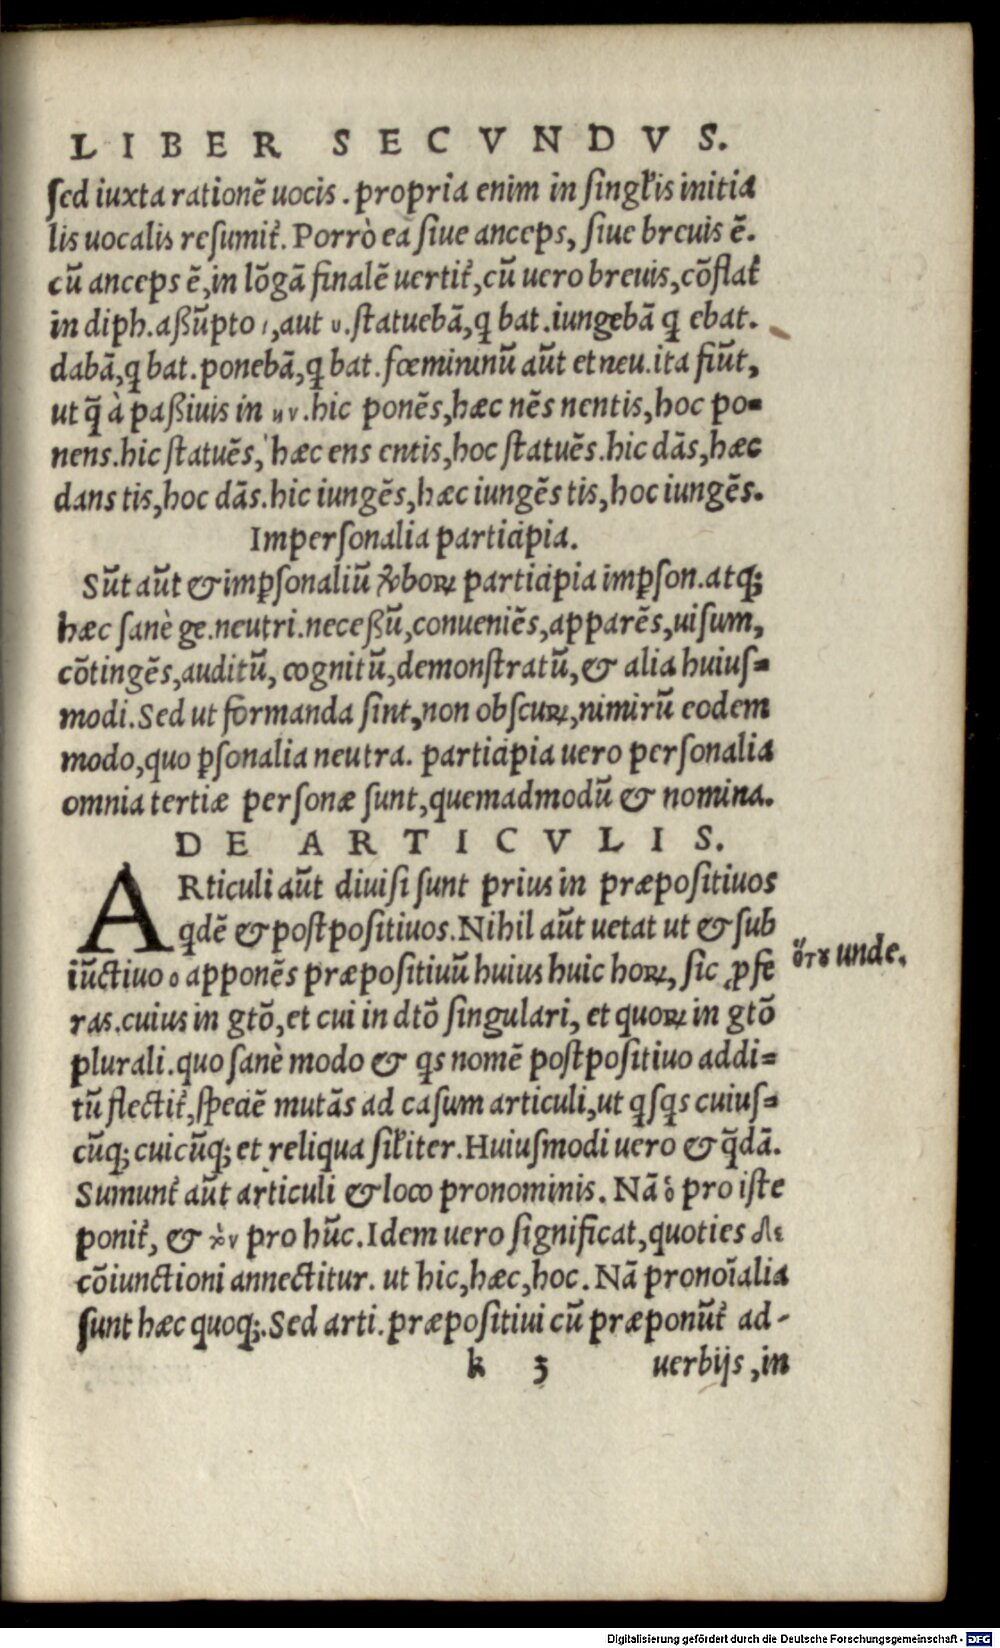 LIBER SECVNDVS.
ſed iuxta rationē uocis. propria enim in singłis initia
lis uocalis reſumit̃. Porrò ea ſiue anceps, ſiue breuis ē.
cū anceps ē, in lōgā finalē uertit̃, cū uero breuis, cōflat̃
in diph. aßūpto ι, aut υ. ſtatuebā, ꝗ bat. iungebā ꝗ ebat.
dabā, ꝗ bat. ponebā, ꝗ bat. fœmininū aūt et neu. ita fiūt,
ut q̄ à paßiuis in ην. hic ponēs, hæc nēs nentis, hoc po-
nens. hic ſtatuēs, hæc ens entis, hoc ſtatuēs. hic dās, hæc
dans tis, hoc dās. hic iungēs, hæc iungēs tis, hoc iungēs.
Imperſonalia participia.
Sūt aūt & imꝑſonaliū ꝟboꝝ participia imꝑſon. atq;
hæc ſanè ge. neutri. neceßū, conueniēs, apparēs, uiſum,
cōtingēs, auditū, cognitū, demonſtratū, & alia huiuſ-
modi. Sed ut formanda ſint, non obſcuꝝ, nimirū eodem
modo, quo ꝑſonalia neutra. participia uero perſonalia
omnia tertiæ perſonæ ſunt, quemadmodū & nomina.
DE ARTICVLIS.
ARticuli aūt diuiſi ſunt prius in præpoſitiuos
qdē & poſtpoſitiuos. Nihil aūt uetat ut & ſub
iūctiuo ο apponēs præpoſitiuū huius huic hoꝝ, ſic ꝓfe
ras. cuius in gtō, et cui in dtō ſingulari, et quoꝝ in gtō
plurali. quo ſanè modo & qs nomē poſtpoſitiuo addi-
tū flectit̃, ſpeciē mutās ad caſum articuli, ut qſqs cuiuſ-
cūq; cuicūq; et reliqua ſiłiter. Huiuſmodi uero & q̄dā.
Sumunt̃ aūt articuli & loco pronominis. Nā ὁ pro iſte
ponit̃, & τὸν pro hūc. Idem uero ſignificat, quoties δὲ
cōiunctioni annectitur. ut hic, hæc, hoc. Nā pronoīalia
ſunt hæc quoq;. Sed arti. præpoſitiui cū præponūt̃ ad-
k 3 uerbijs, in
ὅτου unde.
Digitalisierung gefördert durch die Deutsche Forschungsgemeinschaft - DFG